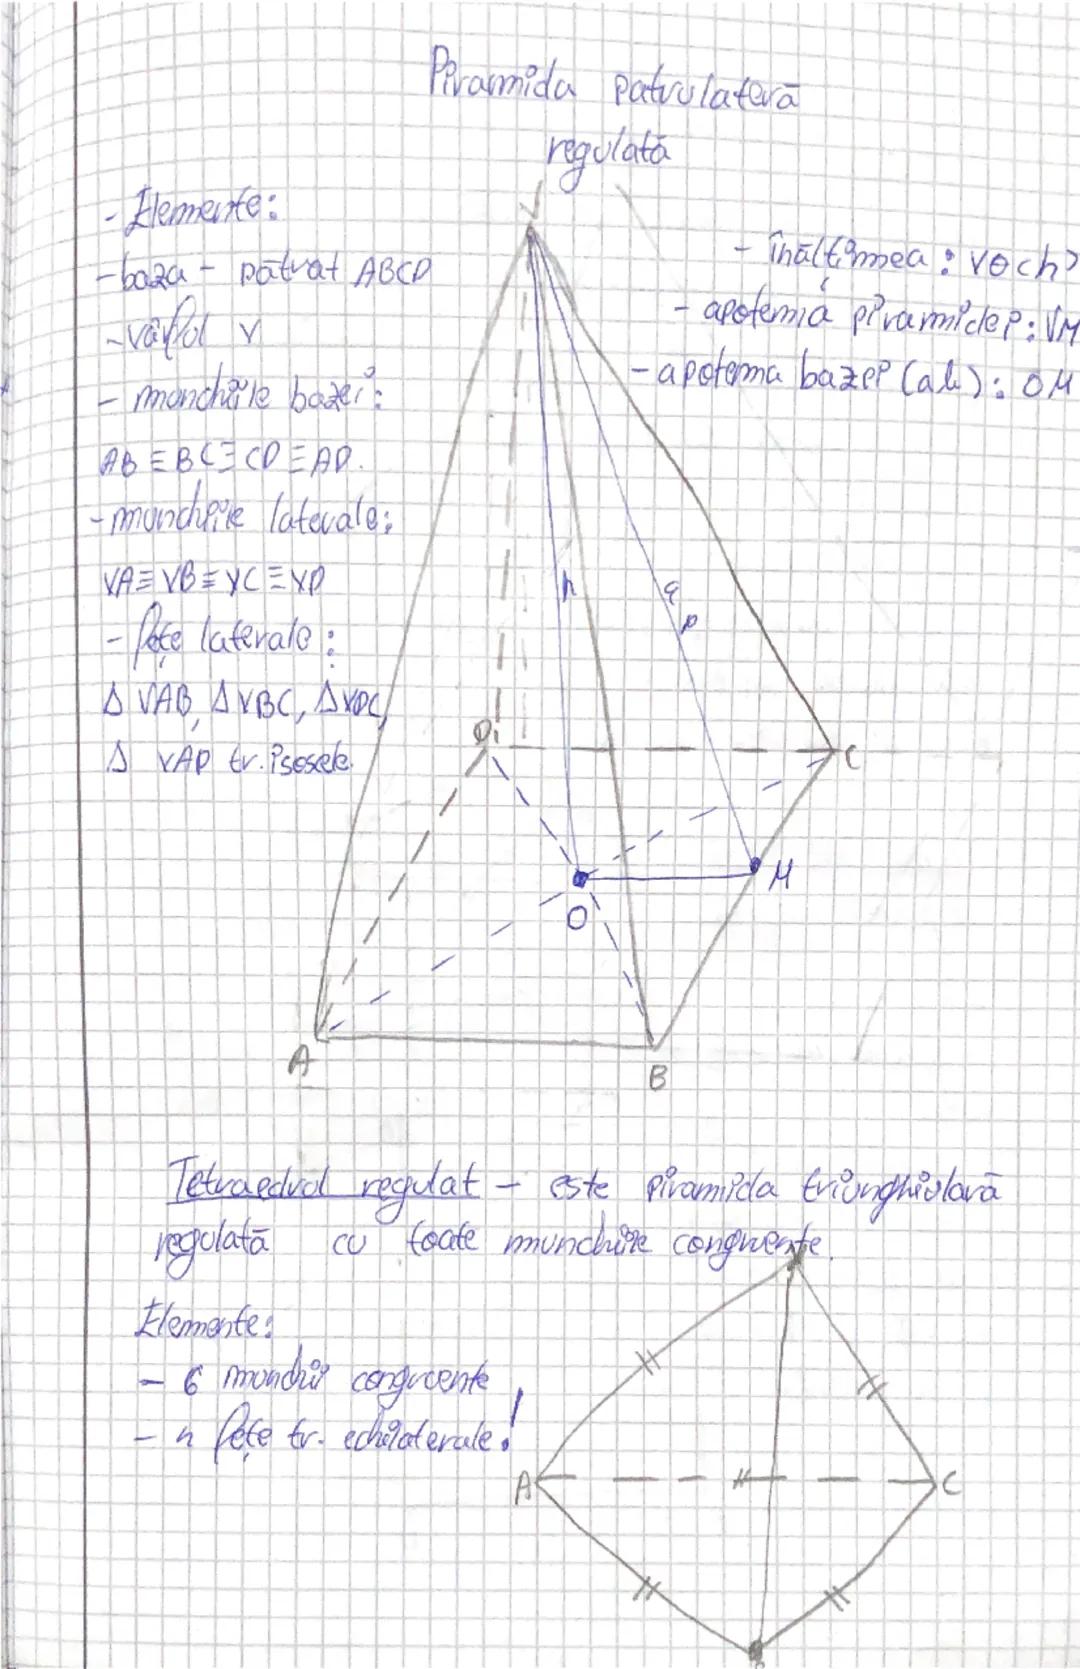 Piramida patrulateră
regulată
- Elemente:
- baza - pătrat ABCD
- vârful V
- muchiile bazei:
AB ≡ BC ≡ CD ≡ AD.
- munchiile laterale:
VA ≡ VB ≡ VC ≡ VD
- fețe laterale:
Δ VAB, Δ VBC, Δ VDC,
Δ VAD tr. isosele.
- înălțimea: VO (h)
- apotema piramidei: VM
- apotema bazei (ab): OM
V
h
a
p
D
C
O
M
A
B
Tetraedrul regulat - este piramida triunghiulară
regulată cu toate munchiile congruente.
Elemente:
- 6 munchii congruente
- 4 fețe tr. echilaterale!
A
C